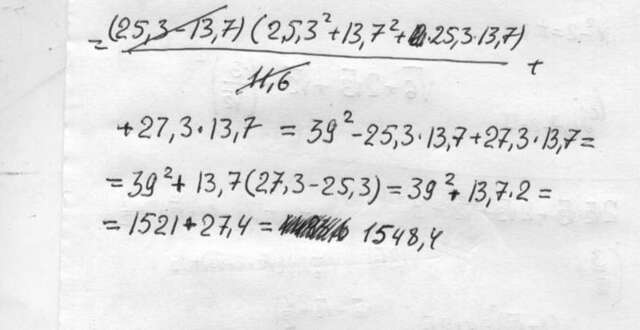 = (25,3-13,7) (25,3²+13,7²+25,3·13,7)
11,6 +
+27,3·13,7 = 39²-25,3·13,7+27,3·13,7=
=39²+13,7(27,3-25,3)=39²+13,7·2=
=1521+27,4= 1548,4